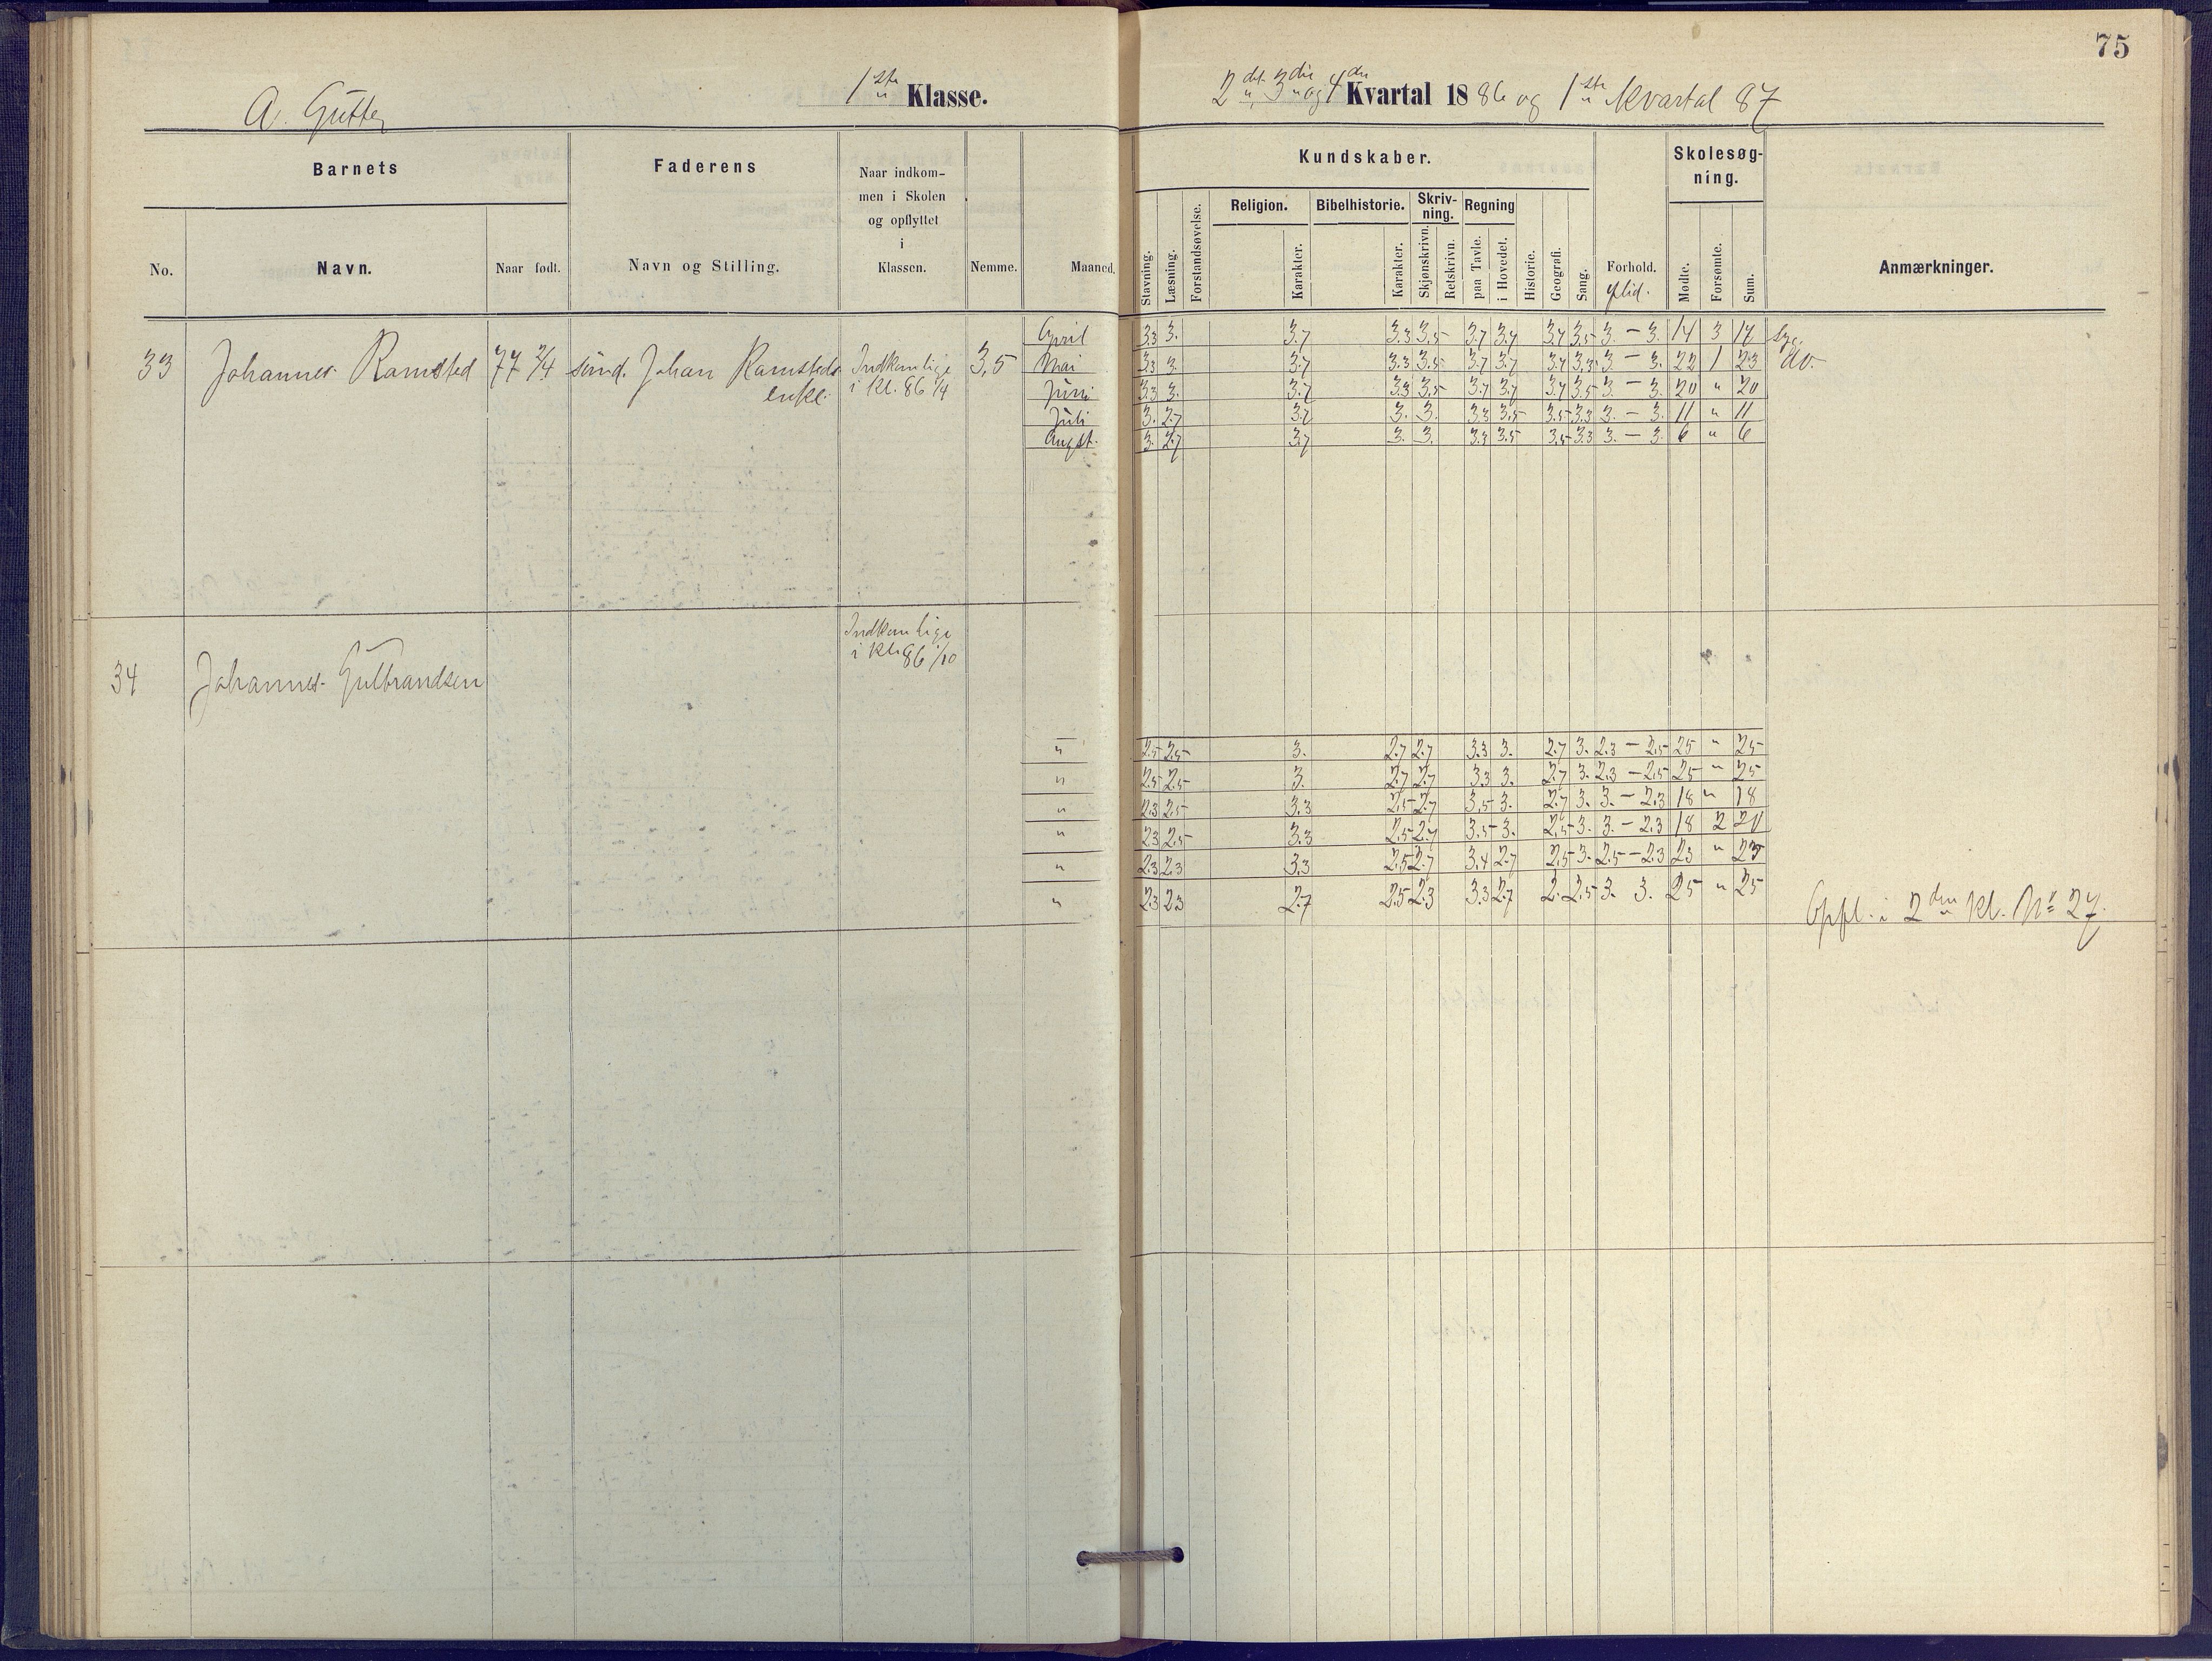 75
A. Gutter
1ste Klasse.
2det 3die og 4de Kvartal 1886 og 1ste Kvartal 87
Barnets
Faderens
Naar indkom-
men i Skolen
og opflyttet
i
Klassen.
No.
Navn.
Naar født.
Navn og Stilling.
Nemme.
Maaned.
Kundskaber.
Skolesøg-
ning.
Religion.
Bibelhistorie.
Skriv-
ning.
Regning
Stavning.
Læsning.
Forstandsøvelse.
Karakter.
Karakter.
Skjønskrivn.
Retskrivn.
paa Tavle.
i Hovedet.
Historie.
Geografi.
Sang.
Forhold.
Flid.
Mødte.
Forsømte.
Sum.
Anmærkninger.
33 Johannes Ramsted 77 2/4 Johan Ramsteds
enke
Indkom lige
i kl. 86 1/4
3,5
April 3.3 3. 3.7 3.3 3.5 3.7 3.7 3.7 3.5 3. - 3. 14 3 17 Syg.
Mai 3.3 3. 3.7 3.3 3.5 3.7 3.7 3.7 3.3 3. - 3. 22 1 23 do.
Juni 3.3 3. 3.7 3.3 3.5 3.7 3.7 3.7 3.5 3. - 3. 20 " 20
Juli 3. 2.7 3.7 3. 3. 3.3 3.5 3.5 3.3 3. - 3. 11 " 11
Augst. 3. 2.7 3.7 3. 3. 3.3 3.5 3.5 3.3 3. - 3. 6 " 6
34 Johannes Gulbrandsen
Indkom lige
i kl. 86 1/10
" 2.5 2.5 3. 2.7 2.7 3.3 3. 2.7 3. 2.3 - 2.5 25 " 25
" 2.5 2.5 3. 2.7 2.7 3.3 3. 2.7 3. 2.3 - 2.5 25 " 25
" 2.3 2.5 3.3 2.5 2.7 3.5 3. 2.7 3. 3. - 2.3 18 " 18
" 2.3 2.5 3.3 2.5 2.7 3.5 3. 2.5 3. 3. - 2.3 18 2 20
" 2.3 2.3 3.3 2.5 2.7 3.4 2.7 2.5 3. 2.5 - 2.3 23 " 23
" 2.3 2.3 2.7 2.5 2.3 3.3 2.7 2. 2.5 3. 3. 25 " 25
Oppl. i 2den kl. No 27.